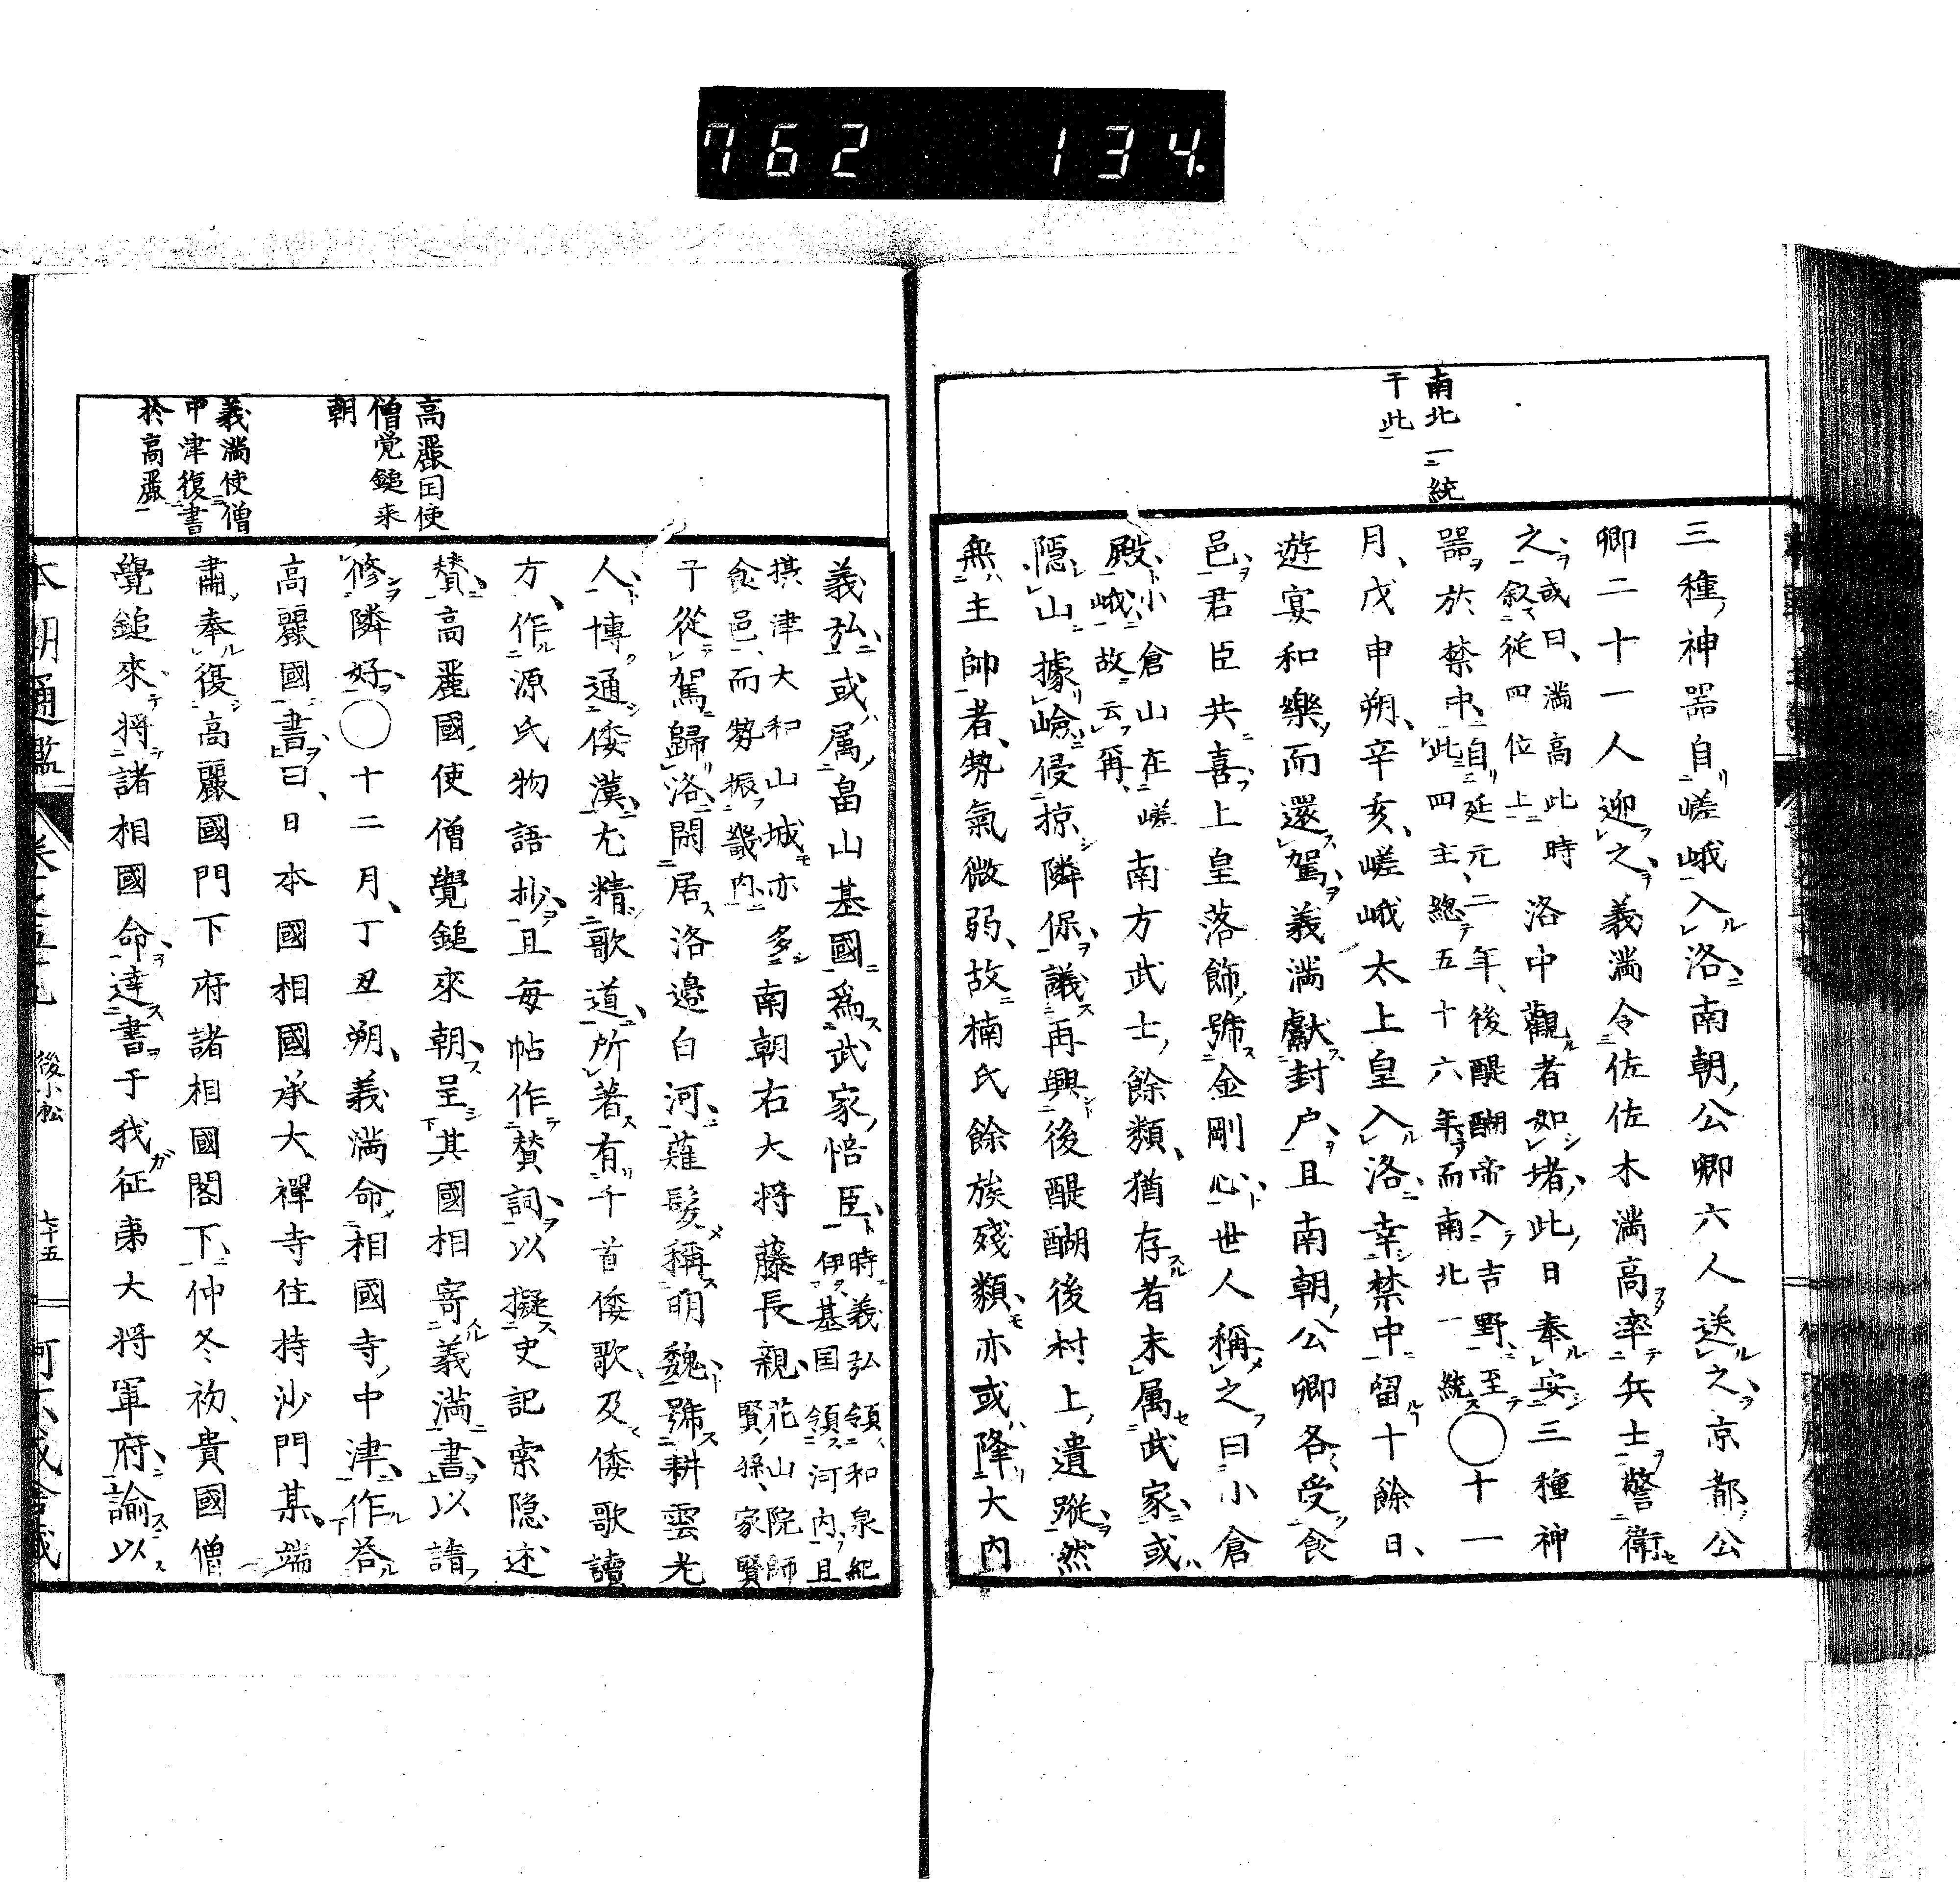 762 134
南北一統
于此
三種神器自嵯峨入洛南朝公卿六人送之京都公
卿二十一人迎之義満令佐佐木満高率兵士警衛
之或曰満高此時
叙従四位上
洛中觀者如堵此日奉安三種神
器於禁中
自延元二年後醍醐帝入吉野至
此四主總五十六年而南北一統
◯十一
月戊申朔辛亥嵯峨太上皇入洛幸禁中留十餘日
遊宴和樂而還駕義満獻封户且南朝公卿各受食
邑君臣共喜上皇落飾號金剛心世人稱之曰小倉
殿
小倉山在嵯
峨故云爾
南方武士餘類猶存者未属武家或
隠山據嶮侵掠隣保議再興後醍醐後村上遺蹤然
無主帥者勢氣微弱故楠氏餘族殘類亦或降大内
高麗国使
僧覚鎚来
朝
義満使僧
中津復書
於高麗
義弘或属畠山基國爲武家倍臣
時義弘領和泉紀
伊基国領河内且
摂津大和山城亦多
食邑而勢振畿内
南朝右大将藤長親
花山院師
賢孫家賢
子從駕歸洛閑居洛邉白河薙髪稱明魏號耕雲老
人博通倭漢尤精歌道所著有千首倭歌及倭歌讀
方作源氏物語抄且毎帖作賛詞以擬史記索隠述
賛高麗國使僧覺鎚來朝呈其國相寄義満書以請
修隣好◯十二月丁丑朔義満命相國寺中津作答
高麗國書曰日本國相國承天禪寺住持沙門某端
肅奉復高麗國門下府諸相國閣下仲冬初貴國僧
覺鎚來将諸相國命達書于我征夷大将軍府諭以
本朝通鑑
後小松
七十五